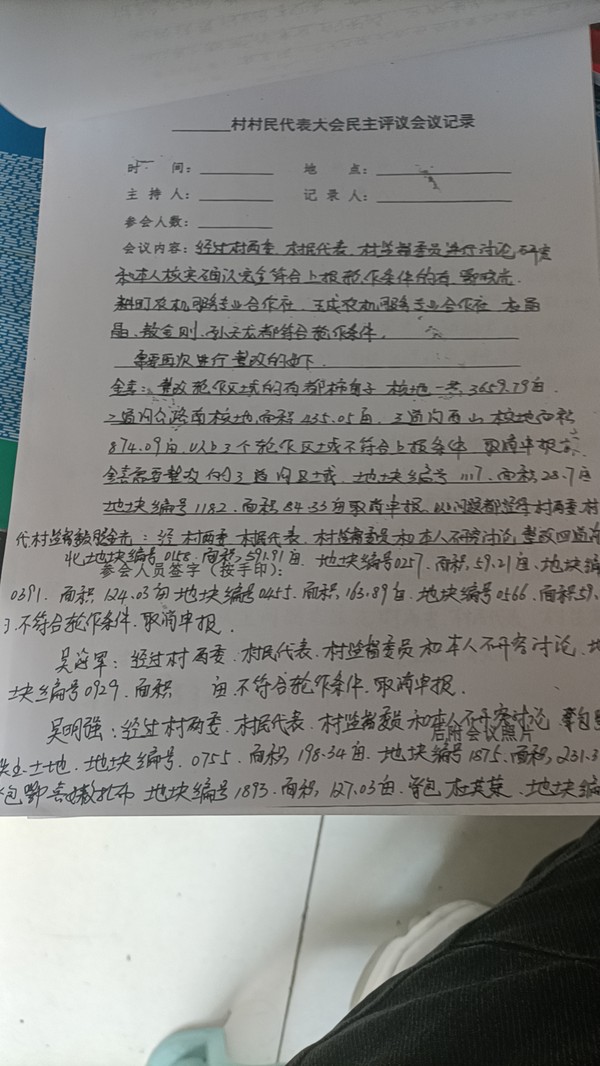 村村民代表大会民主评议会议记录
时 间： 地 点：
主 持 人： 记 录 人：
参会人数：
会议内容：经过村两委、村民代表、村监督委员进行讨论研究
和本人核实确认完全符合上报轮作条件的有
农机服务专业合作社、农机服务专业合作社
孙天龙都符合轮作条件。
需要再次进行整改的如下
整改轮作区域的有 核地一共3659.79亩
二道沟公路南核地面积435.05亩，三道沟西山核地面积
874.09亩，以上3个轮作区域不符合上报条件 取消申报
需要整改的3道沟区域，地块编号1117，面积28.7亩
地块编号1182，面积84.33亩取消申报，以上问题都经本村两委、村
代、村监督 ：经村两委、村民代表、村监督委员和本人不开客讨论，整改四道沟
北地块编号0158，面积591.91亩，地块编号0257，面积59.21亩，地块编
参会人员签字（按手印）：
0391，面积124.03亩 地块编号0455，面积163.89亩，地块编号0566，面积59.
不符合轮作条件，取消申报．
吴海军：经过村两委、村民代表、村监督委员和本人不开客讨论、地
块编号0929，面积 亩不符合轮作条件，取消申报．
吴明强：经过村两委、村民代表、村监督委员和本人不开客讨论
后附会议照片
土地．地块编号．0755．面积198.34亩．地块编号1875．面积231.3
包 地块编号1893．面积127.03亩．承包 ．地块编